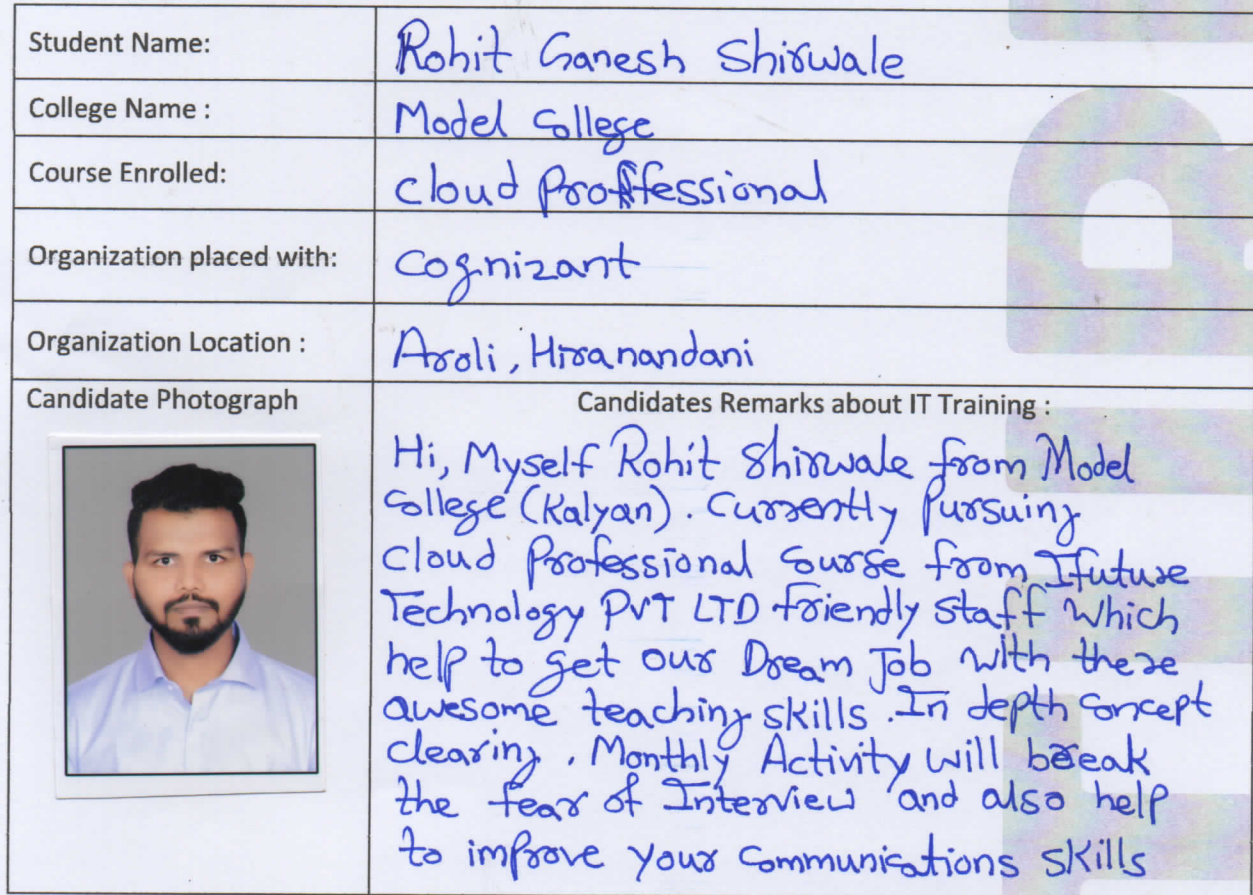 Student Name: Rohit Ganesh Shirwale
College Name : Model College
Course Enrolled: Cloud Proffessional
Organization placed with: Cognizant
Organization Location : Aroli, Hiranandani
Candidate Photograph
Candidates Remarks about IT Training :
Hi, Myself Rohit Shirwale from Model
College (Kalyan). Currently Pursuing
Cloud Professional Course from Ifuture
Technology PVT LTD friendly staff Which
help to get our Dream Job with there
awesome teaching skills. In depth Concept
clearing. Monthly Activity will break
the fear of Interview and also help
to improve your Communications skills